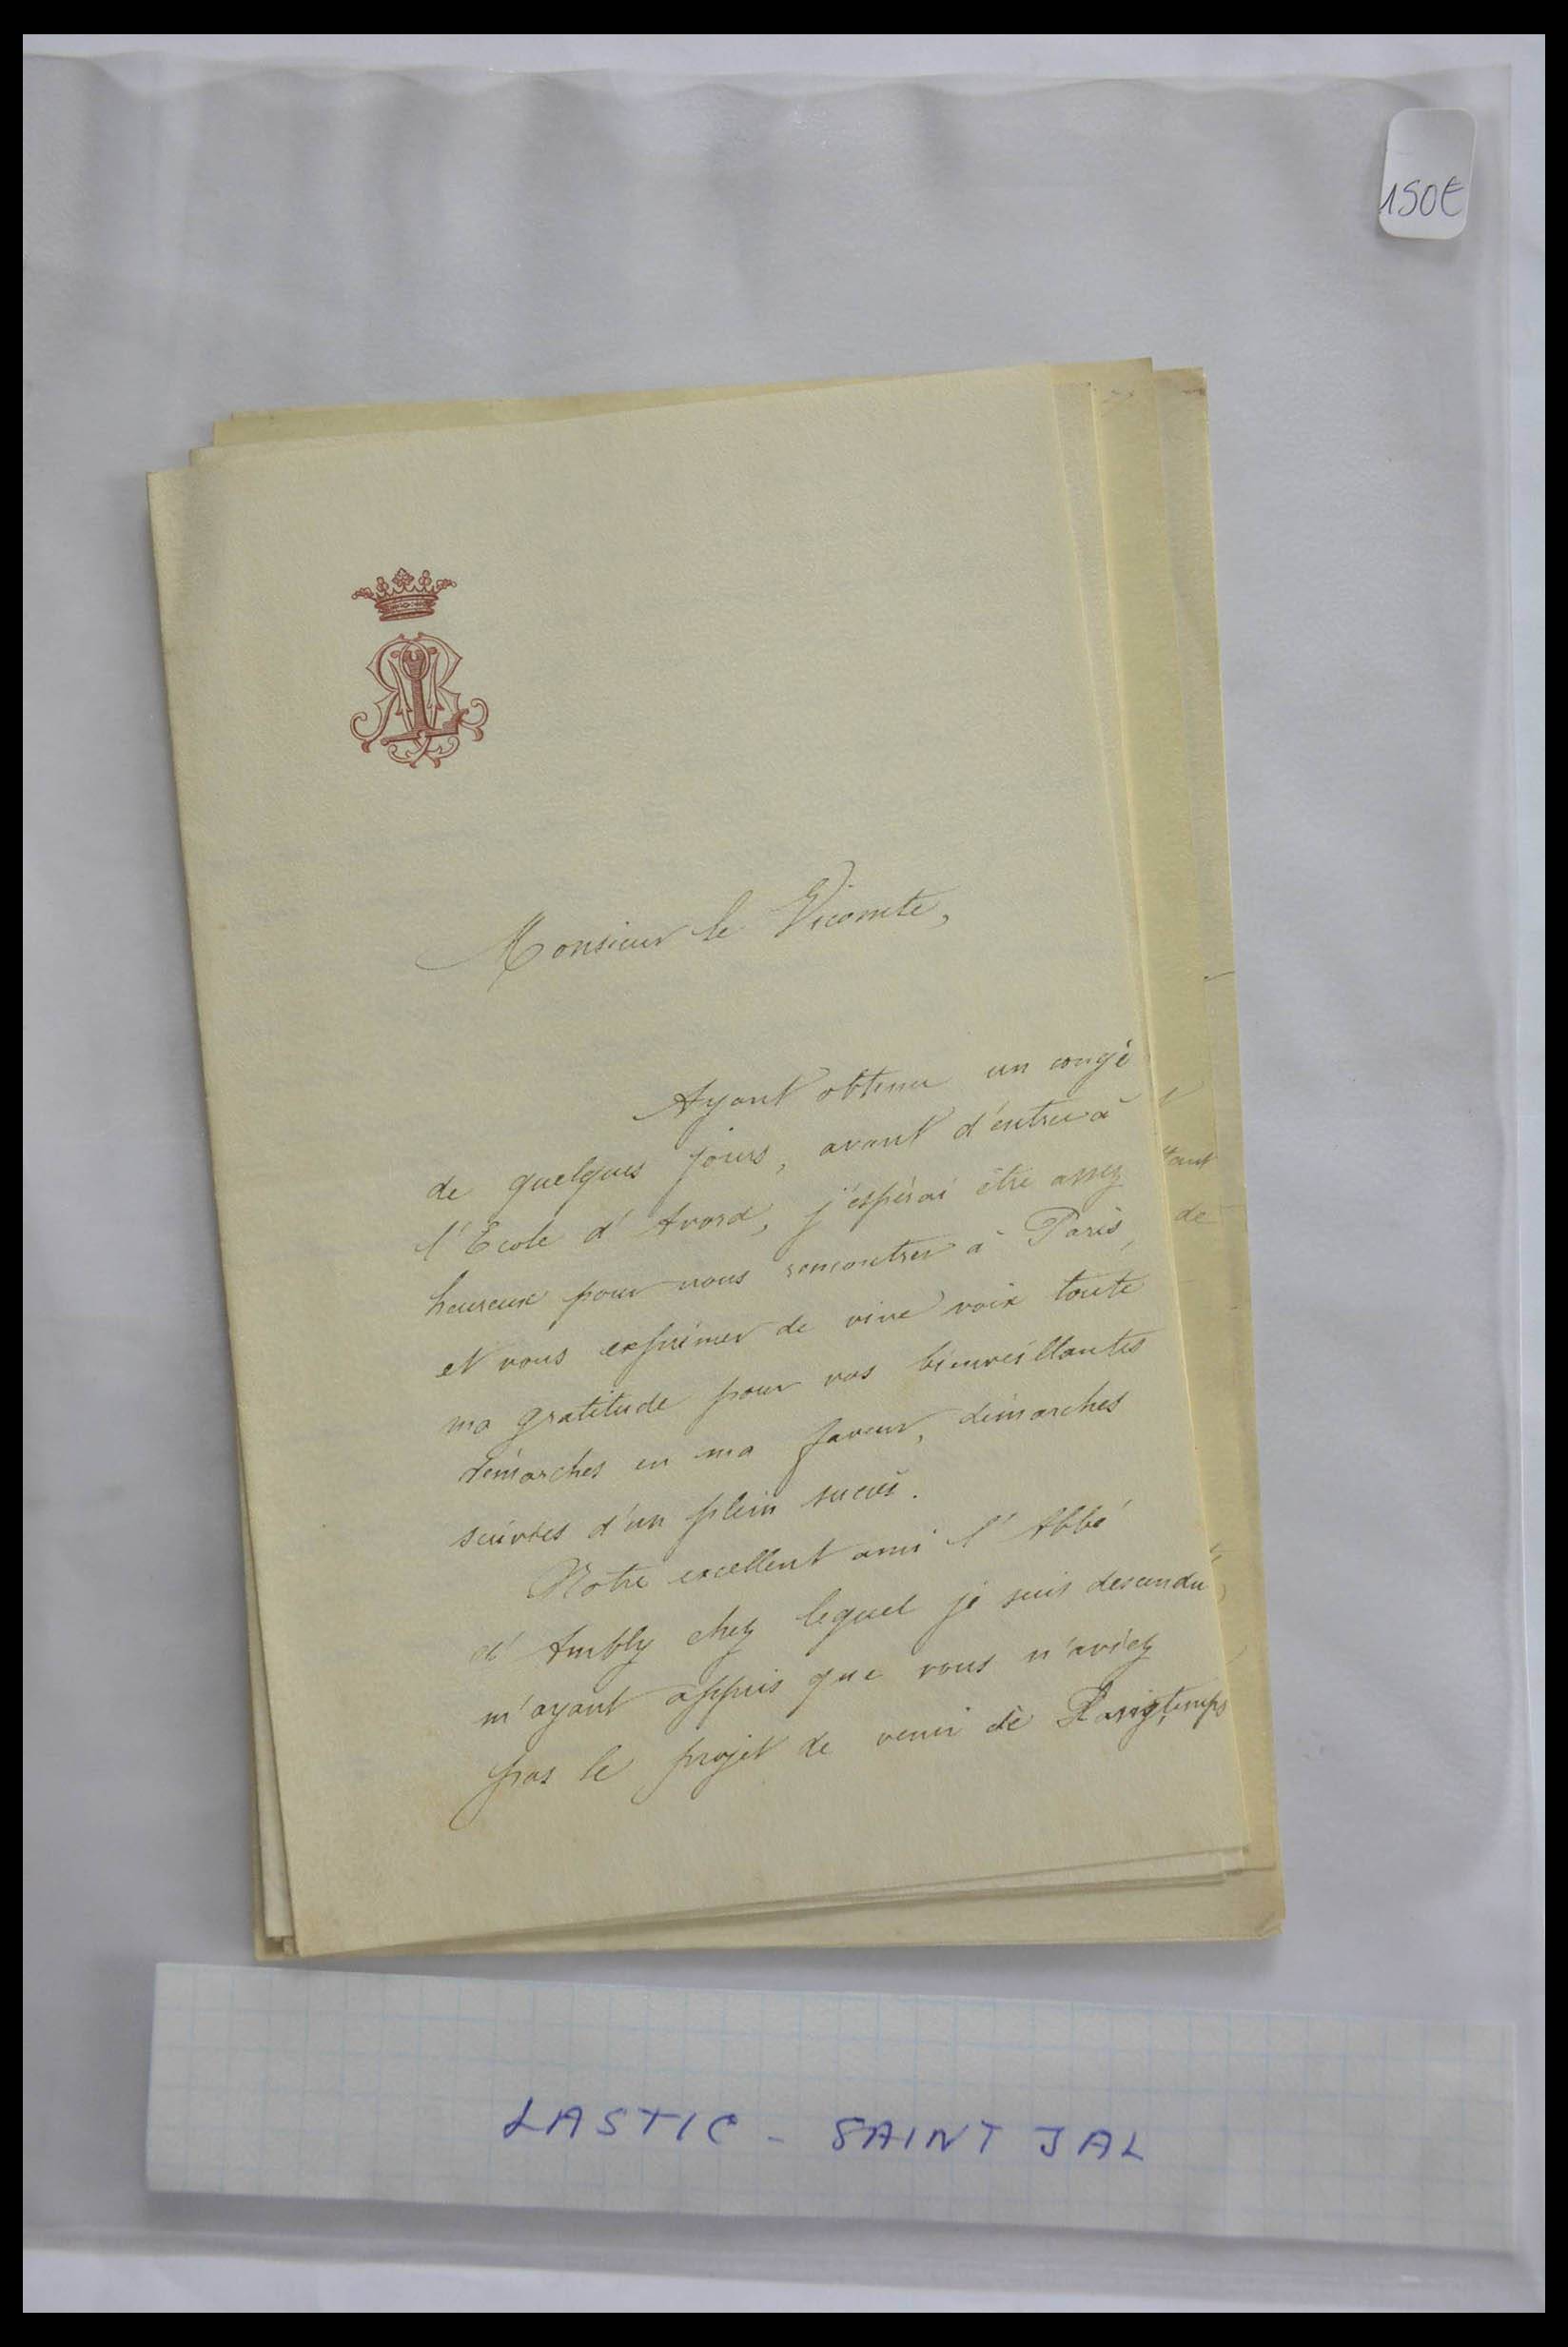 150€
Monsieur le Vicomte,
Ayant obtenu un congé
de quelques jours, avant d'entrer à
l'Ecole d'Avord, j'espérai être assez
heureux pour vous rencontrer à Paris,
et vous exprimer de vive voix toute
ma gratitude pour vos bienveillantes
démarches en ma faveur, démarches
suivies d'un plein succès.
Notre excellent ami l'Abbé
d'Ambly chez lequel je suis descendu
m'ayant appris que vous n'aviez
pas le projet de venir de
tant
de
LASTIC - SAINT JAL